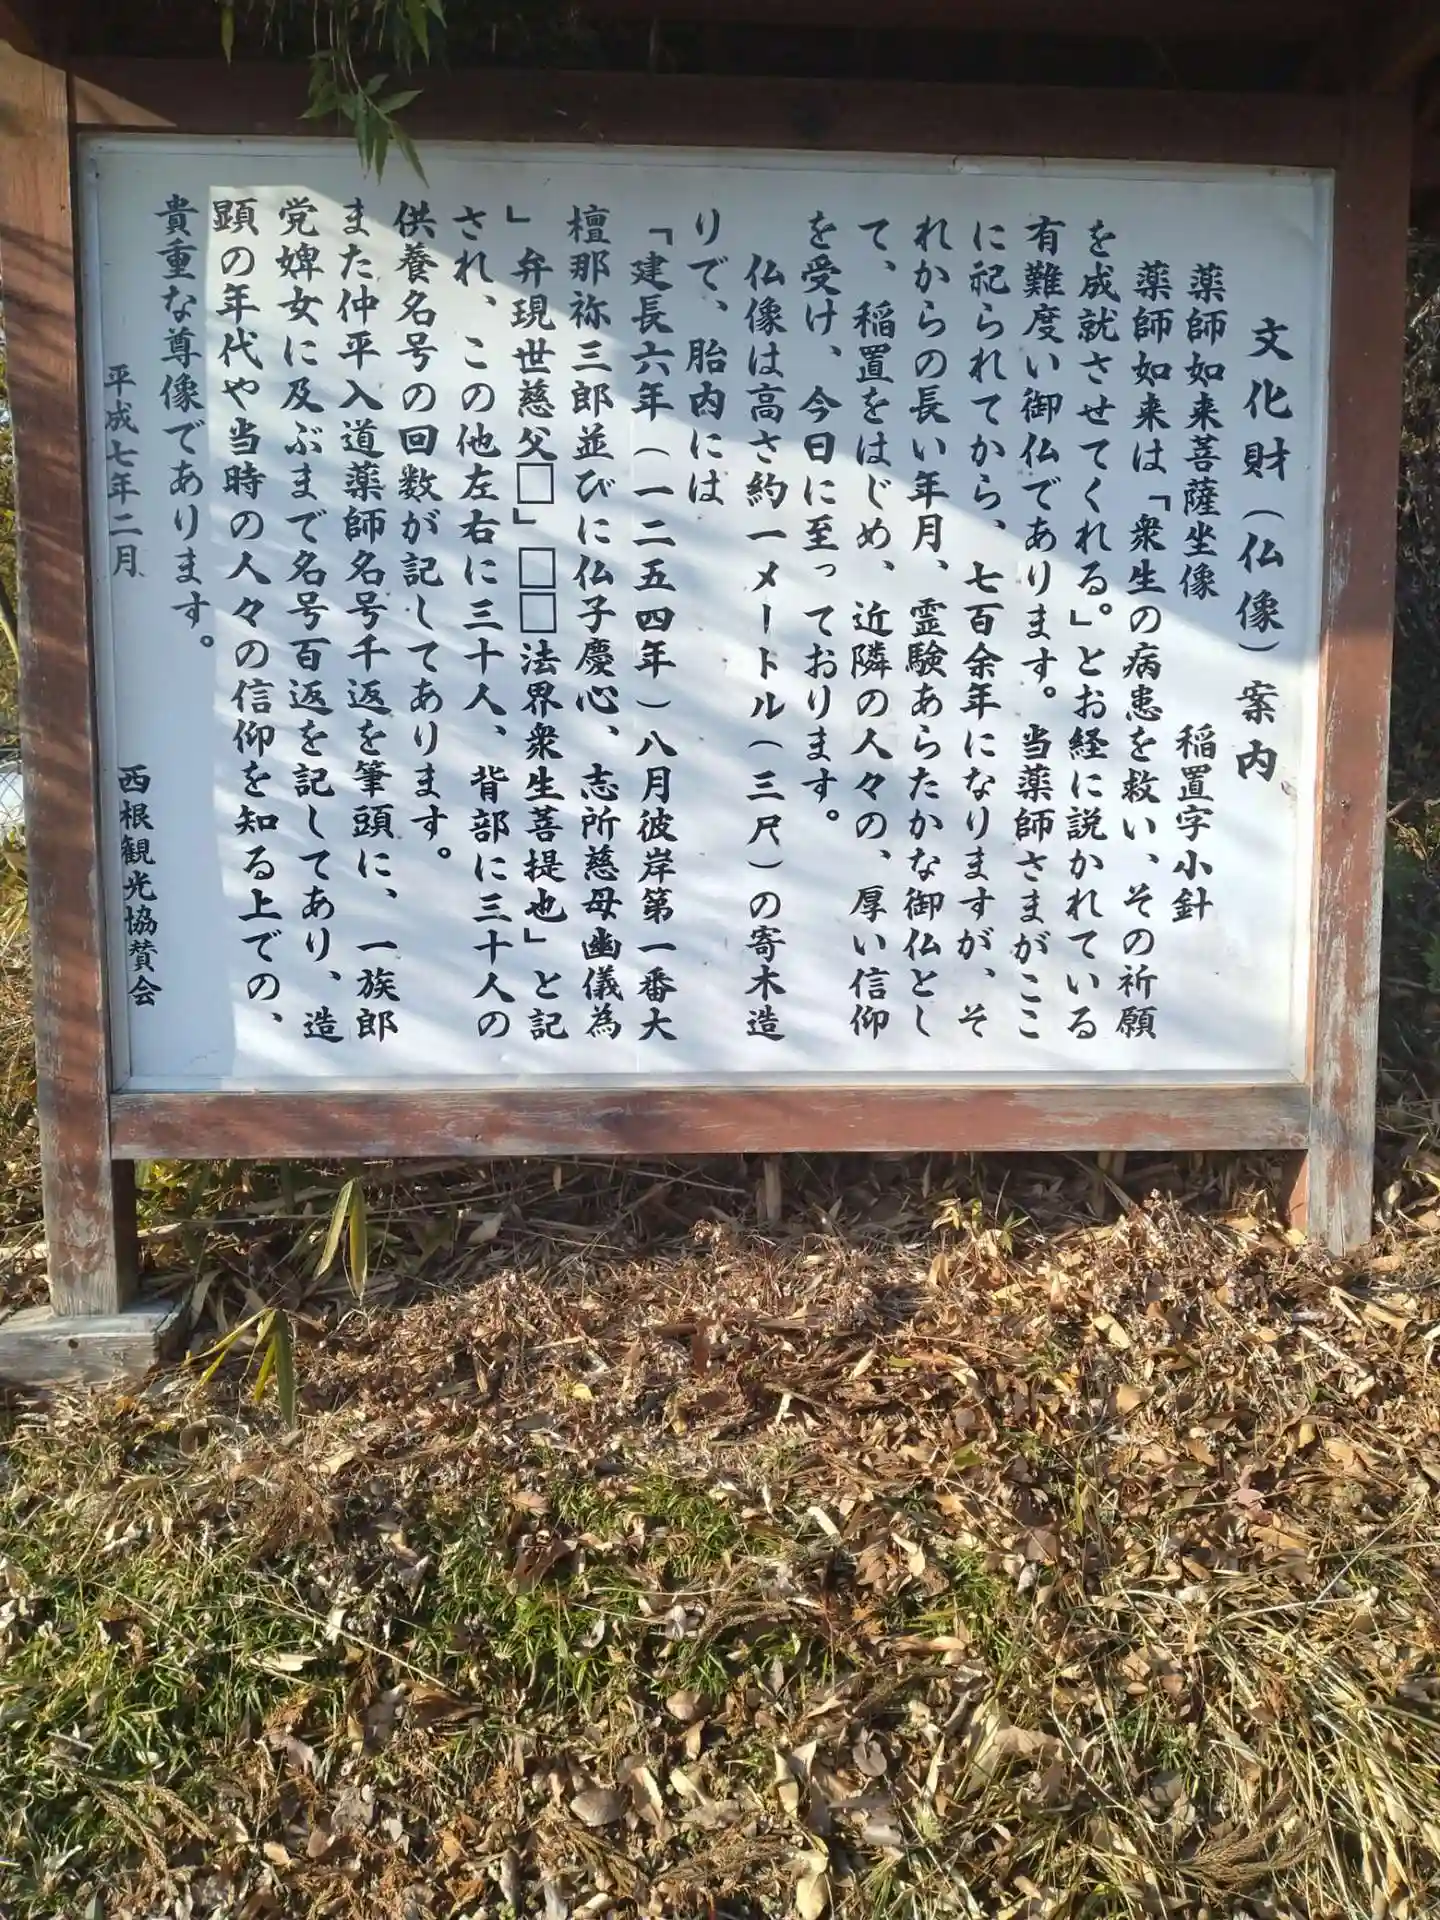 文化財（仏像）案内
薬師如来菩薩坐像　稲置字小針
薬師如来は「衆生の病患を救い、その祈願
を成就させてくれる。」とお経に説かれている
有難度い御仏であります。当薬師さまがここ
に祀られてから、七百余年になりますが、そ
れからの長い年月、霊験あらたかな御仏とし
て、稲置をはじめ、近隣の人々の、厚い信仰
を受け、今日に至っております。
仏像は高さ約一メートル（三尺）の寄木造
りで、胎内には
「建長六年（一二五四年）八月彼岸第一番大
檀那祢三郎並びに仏子慶心、志所慈母幽儀為
」弁現世慈父□」□□法界衆生菩提也」と記
され、この他左右に三十人、背部に三十人の
供養名号の回数が記してあります。
また仲平入道薬師名号千返を筆頭に、一族郎
党婢女に及ぶまで名号百返を記してあり、造
顕の年代や当時の人々の信仰を知る上での、
貴重な尊像であります。
平成七年二月
西根観光協賛会